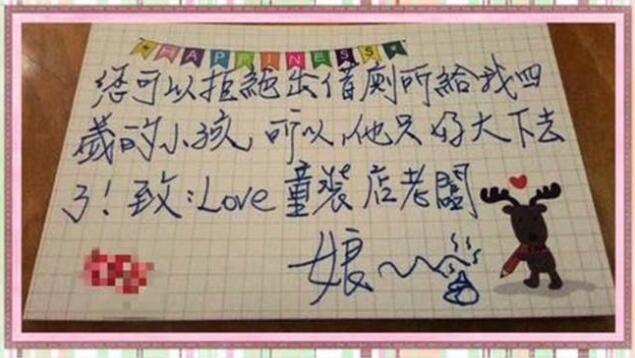 HAPPINESS
您可以拒絕出借廁所給我四
歲的小孩，所以，他只好大下去
了！致：Love 童裝店老闆
娘～～